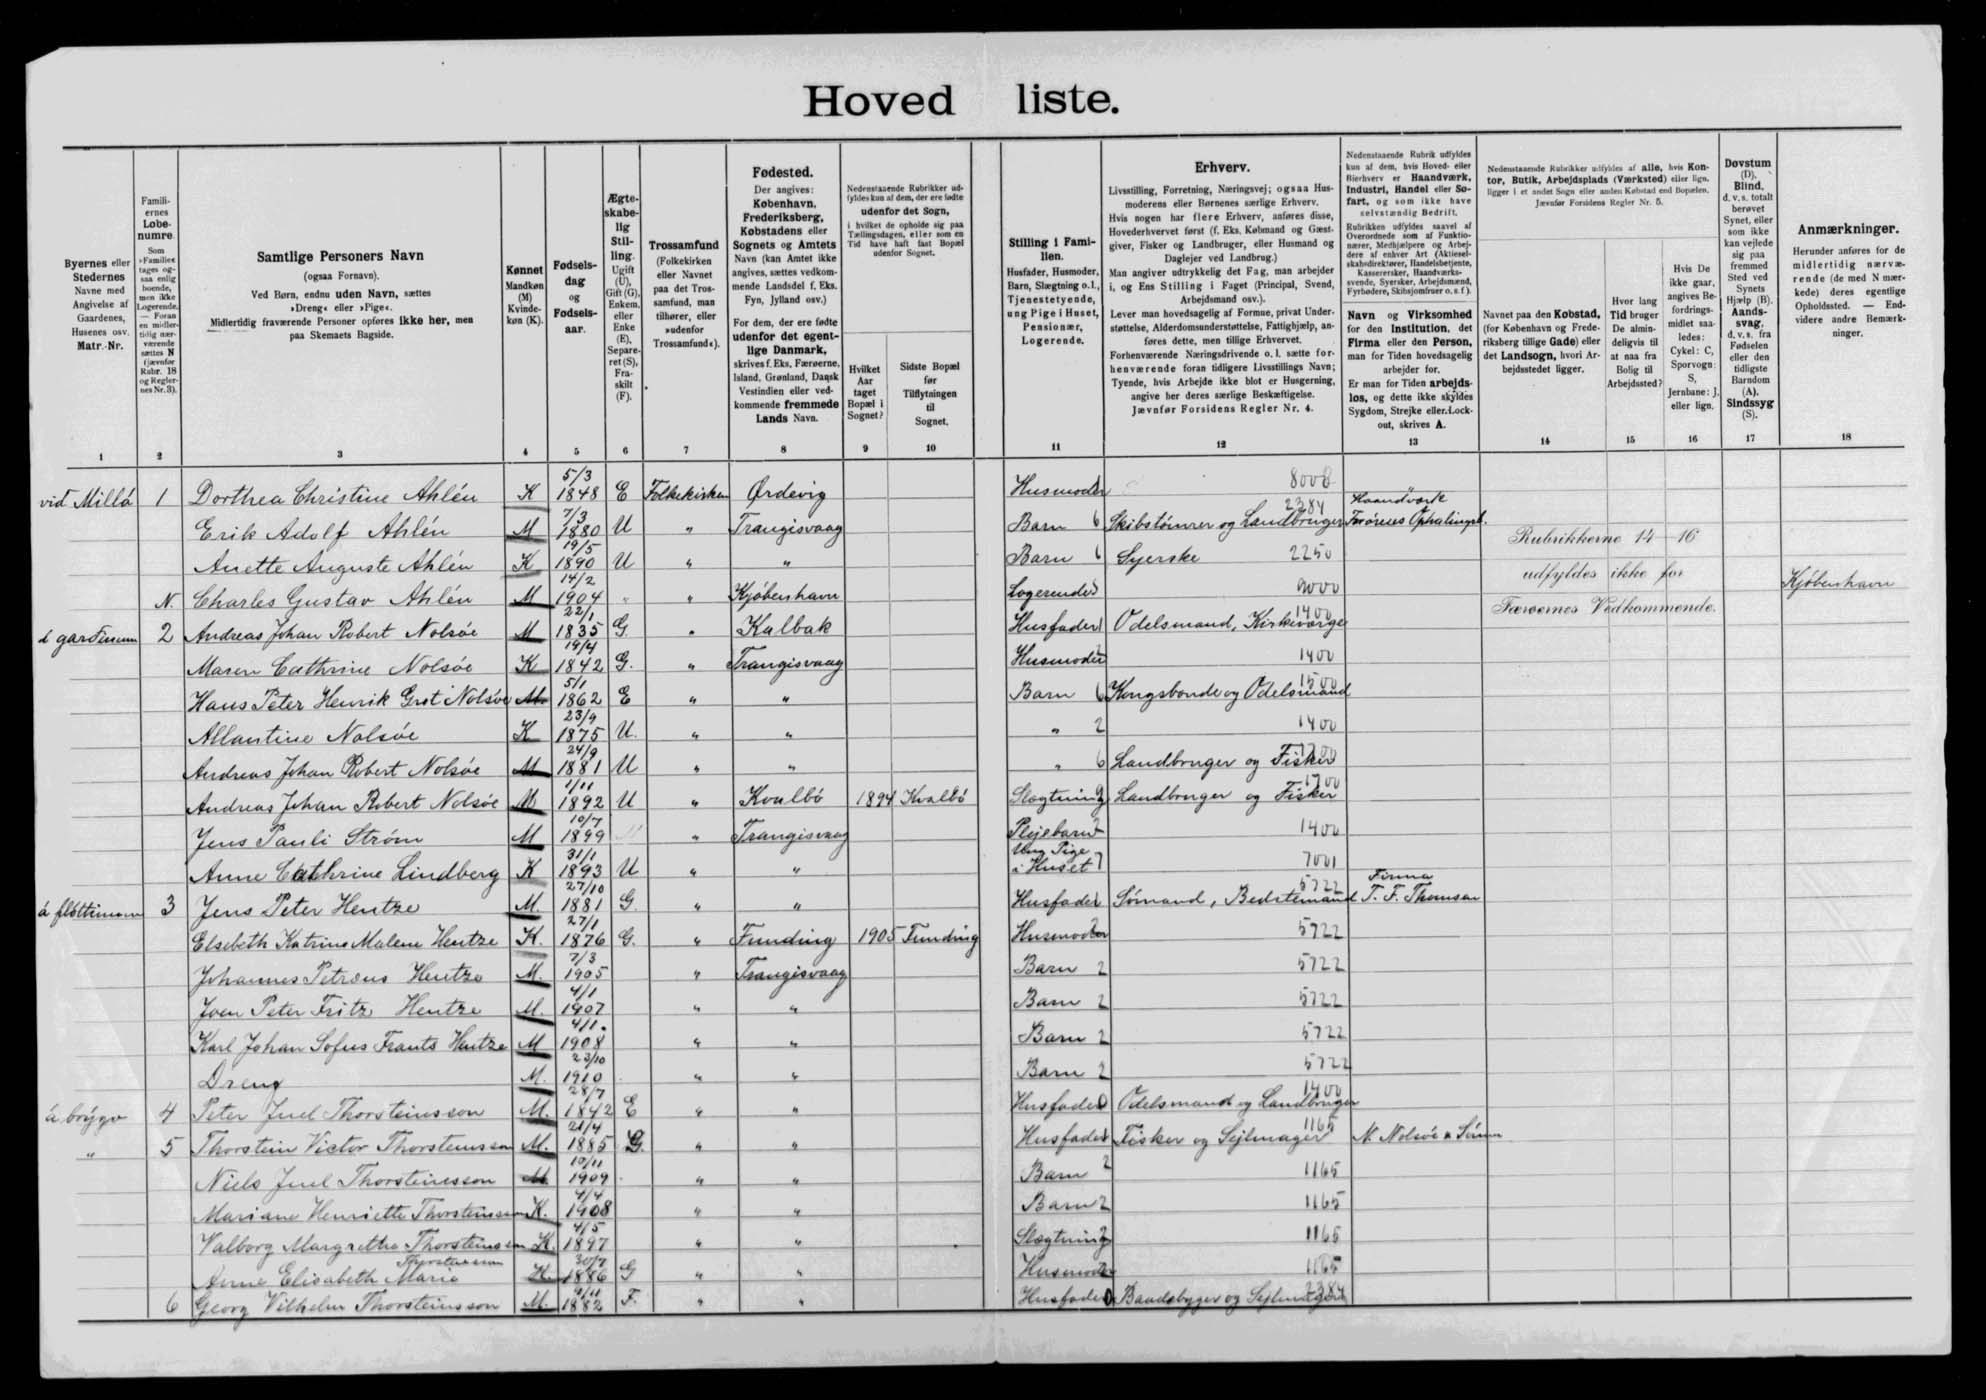 Hoved liste.
Byernes eller Stedernes Navne med Angivelse af Gaardenes, Husenes osv. Matr.-Nr.
Familiernes Løbenumre. Som »Familie« tages ogsaa enlig boende, men ikke Logerende. — Foran en midlertidig nærværende sættes N (jævnfør Rubr. 18 og Reglernes Nr. 3).
Samtlige Personers Navn (ogsaa Fornavn). Ved Børn, endnu uden Navn, sættes »Dreng« eller »Pige«. Midlertidig fraværende Personer opføres ikke her, men paa Skemaets Bagside.
Kønnet Mandkøn (M) Kvindekøn (K).
Fødselsdag og Fødselsaar.
Ægteskabelig Stilling. Ugift (U), Gift (G), Enkem. eller Enke (E), Separeret (S), Fraskilt (F).
Trossamfund (Folkekirken eller Navnet paa det Trossamfund, man tilhører, eller »udenfor Trossamfund«).
Fødested. Der angives: København, Frederiksberg, Købstadens eller Sognets og Amtets Navn (kan Amtet ikke angives, sættes vedkommende Landsdel f. Eks. Fyn, Jylland osv.) For dem, der ere fødte udenfor det egentlige Danmark, skrives f. Eks. Færøerne, Island, Grønland, Dansk Vestindien eller vedkommende fremmede Lands Navn.
Nedenstaaende Rubrikker udfyldes kun af dem, der ere fødte udenfor det Sogn, i hvilket de opholde sig paa Tællingsdagen, eller som en Tid have haft fast Bopæl udenfor Sognet.
Hvilket Aar taget Bopæl i Sognet?
Sidste Bopæl før Tilflytningen til Sognet.
Stilling i Familien. Husfader, Husmoder, Barn, Slægtning o. l., Tjenestetyende, ung Pige i Huset, Pensionær, Logerende.
Erhverv. Livsstilling, Forretning, Næringsvej; ogsaa Husmoderens eller Børnenes særlige Erhverv. Hvis nogen har flere Erhverv, anføres disse, Hovederhvervet først (f. Eks. Købmand og Gæstgiver, Fisker og Landbruger, eller Husmand og Daglejer ved Landbrug.) Man angiver udtrykkelig det Fag, man arbejder i, og Ens Stilling i Faget (Principal, Svend, Arbejdsmand osv.). Lever man hovedsagelig af Formue, privat Understøttelse, Alderdomsunderstøttelse, Fattighjælp, anføres dette, men tillige Erhvervet. Forhenværende Næringsdrivende o. l. sætte forhenværende foran tidligere Livsstillings Navn; Tyende, hvis Arbejde ikke blot er Husgerning, angive her deres særlige Beskæftigelse. Jævnfør Forsidens Regler Nr. 4.
Nedenstaaende Rubrik udfyldes kun af dem, hvis Hoved- eller Bierhverv er Haandværk, Industri, Handel eller Søfart, og som ikke have selvstændig Bedrift. Rubrikken udfyldes saavel af Overordnede som af Funktionærer, Medhjælpere og Arbejdere af enhver Art (Aktieselskabsdirektører, Handelsbetjente, Kasserersker, Haandværkssvende, Syersker, Arbejdsmænd, Fyrbødere, Skibsjomfruer o. s. f.). Navn og Virksomhed for den Institution, det Firma eller den Person, man for Tiden hovedsagelig arbejder for. Er man for Tiden arbejdsløs, og dette ikke skyldes Sygdom, Strejke eller Lockout, skrives A.
Nedenstaaende Rubrikker udfyldes af alle, hvis Kontor, Butik, Arbejdsplads (Værksted) eller lign. ligger i et andet Sogn eller anden Købstad end Bopælen. Jævnfør Forsidens Regler Nr. 5.
Navnet paa den Købstad, (for København og Frederiksberg tillige Gade) eller det Landsogn, hvori Arbejdsstedet ligger.
Hvor lang Tid bruger De almindeligvis til at naa fra Bolig til Arbejdssted?
Hvis De ikke gaar, angives Befordringsmidlet saaledes: Cykel: C, Sporvogn: S, Jernbane: J, eller lign.
Døvstum (D). Blind, d. v. s. totalt berøvet Synet, eller som ikke kan vejlede sig paa fremmed Sted ved Synets Hjælp (B). Aandssvag, d. v. s. fra Fødselen eller den tidligste Barndom (A). Sindssyg (S).
Anmærkninger. Herunder anføres for de midlertidig nærværende (de med N mærkede) deres egentlige Opholdssted. — Endvidere andre Bemærkninger.
1 2 3 4 5 6 7 8 9 10 11 12 13 14 15 16 17 18
vid Millá 1 Dorthea Christine Ahlén K 5/3 1848 E Folkekirken Ørdevig Husmoder 8008
Erik Adolf Ahlén M 7/3 1880 U " Trangisvaag Barn 6 Skibstømrer og Landbruger 2384 Haandværk Færøernes Ophalingsb.
Anette Auguste Ahlén K 19/5 1890 U " " Barn 6 Syerske 2250 Rubrikkerne 14-16
N. Charles Gustav Ahlén M 14/2 1904 " " Kjøbenhavn Logerende 9000 udfyldes ikke for Kjøbenhavn
í garðinum 2 Andreas Johan Robert Nolsøe M 22/1 1835 G. " Kalbak Husfader 1 Odelsmand, Kirkeværge 1400 Færøernes Vedkommende.
Maren Cathrine Nolsøe K 19/4 1842 G. " Trangisvaag Husmoder 2 1400
Hans Peter Henrik Grot Nolsøe M 5/1 1862 E " " Barn 6 Kongsbonde og Odelsmand 1500
Allantine Nolsøe K 23/9 1875 U. " " " 2 1400
Andreas Johan Robert Nolsøe M 24/9 1881 U " " " 6 Landbruger og Fisker 1700
Andreas Johan Robert Nolsøe M 1/11 1892 U " Kvalbö 1894 Kvalbö Slægtning Landbruger og Fisker 1700
Jens Pauli Strøm M 10/7 1899 " Trangisvaag Plejebarn 2 1400
Anne Cathrine Lindberg K 31/1 1893 U " " Ung Pige i Huset 7 7001
á fløttinum 3 Jens Peter Hentze M. 27/10 1881 G. " " Husfader 1 Sømand, Bedstemand 5722 Firma T. F. Thomsen
Elsebeth Katrine Malene Hentze K. 27/1 1876 G. " Funding 1905 Funding Husmoder 2 5722
Johannes Petræus Hentze M. 7/3 1905 " Trangisvaag Barn 2 5722
Joen Peter Fritz Hentze M. 4/1 1907 " " Barn 2 5722
Karl Johan Sofus Frants Hentze M 4/1. 1908 " " Barn 2 5722
Dreng M. 23/10 1910 " " Barn 2 5722
á brýgv 4 Peter Juel Thorsteinsson M. 28/7 1842 E " " Husfader 0 Odelsmand og Landbruger 1400
" 5 Thorstein Victor Thorsteinsson M. 21/4 1885 G. " " Husfader 1 Fisker og Sejlmager 1165 N. Nolsøe & Sönner
Niels Juel Thorsteinsson M 10/11 1909 " " Barn 2 1165
Mariane Henriette Thorsteinsson K. 4/4 1908 " " Barn 2 1165
Valborg Margretha Thorsteinsson K. 4/5 1897 " " Slægtning 2 1165
Anne Elisabeth Marie Thorsteinsson K. 30/7 1886 G " " Husmoder 1165
6 Georg Vilhelm Thorsteinsson M. 9/11 1882 F. " " Husfader 0 Baadebygger og Sejlmager 2384